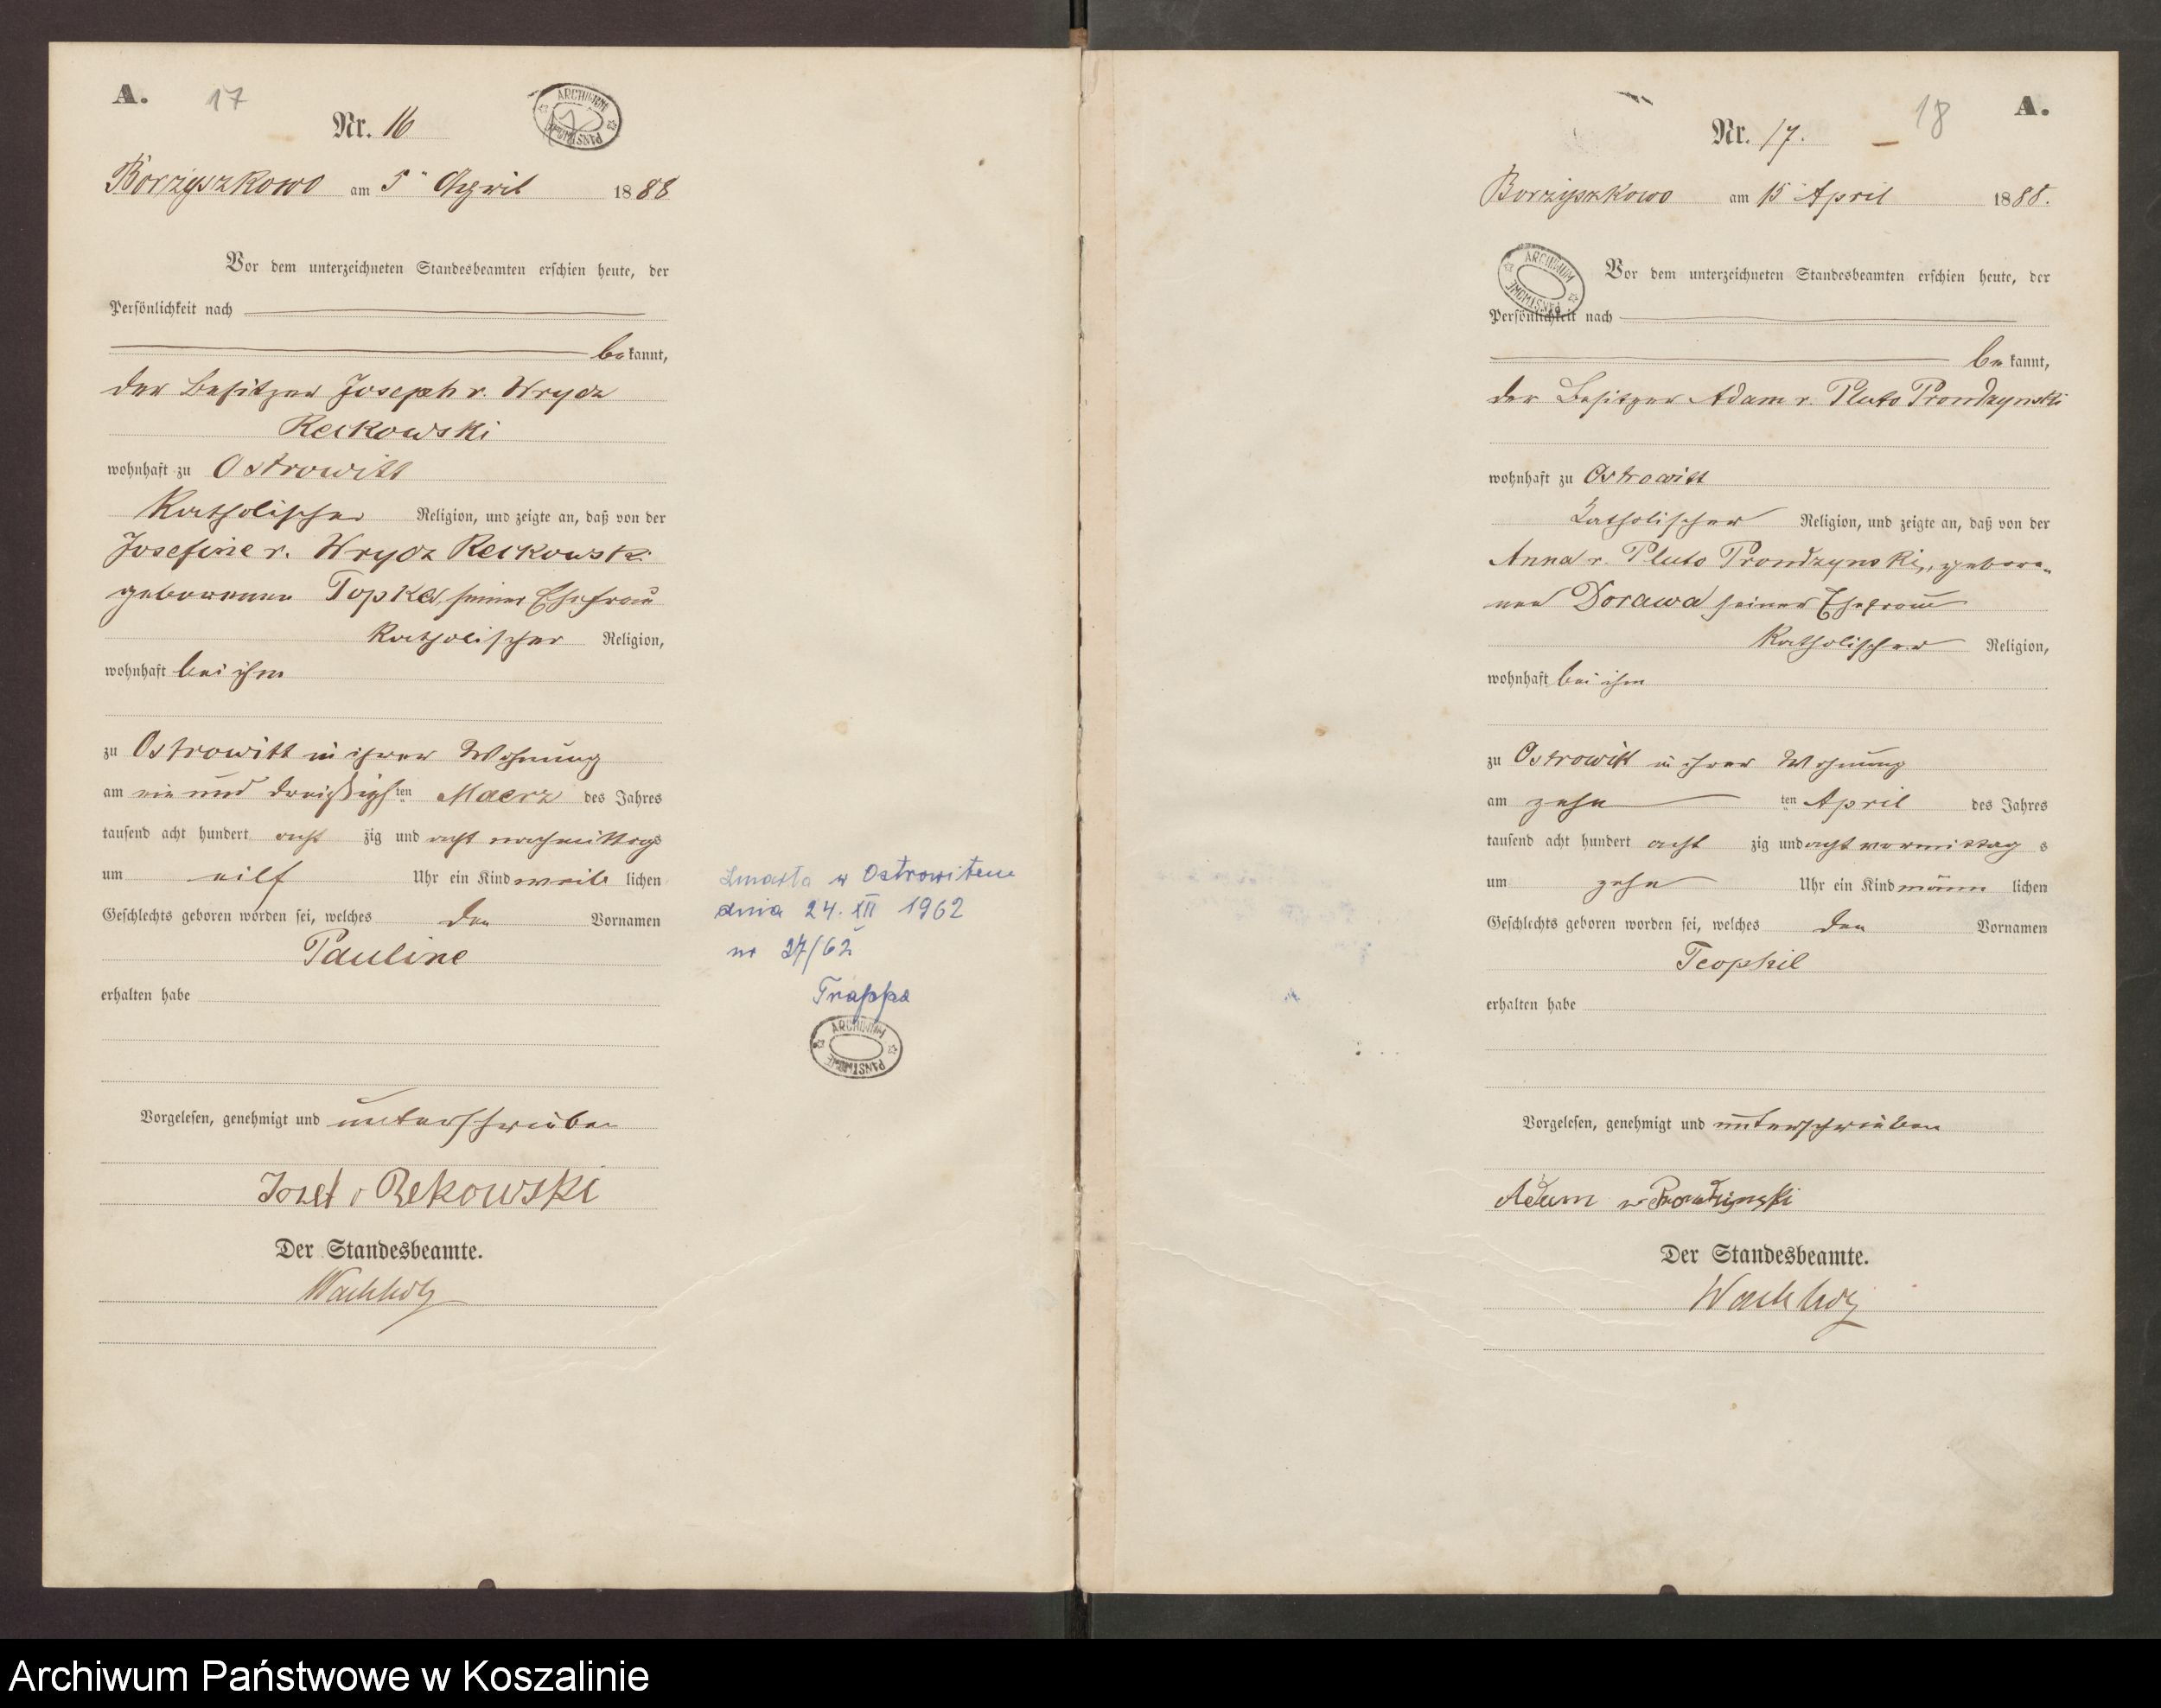 A.
17
Nr. 16
ARCHIWUM PAŃSTWOWE
Borzyszkowo am 5ᵗ April 1888
Vor dem unterzeichneten Standesbeamten erschien heute, der
Persönlichkeit nach
be kannt,
der Besitzer Joseph v. Wrycz
Reckowski
wohnhaft zu Ostrowitt
Katholischer Religion, und zeigte an, daß von der
Josefine v. Wrycz Reckowski
geborenen Topka, seiner Ehefrau
Katholischer Religion,
wohnhaft bei ihm
zu Ostrowitt in ihrer Wohnung
am ein und dreißigsten Maerz des Jahres
tausend acht hundert acht zig und acht nachmittags
um eilf Uhr ein Kind weib lichen
Geschlechts geboren worden sei, welches den Vornamen
Pauline
erhalten habe
Vorgelesen, genehmigt und unterschrieben
Jozef v Rekowski
Der Standesbeamte.
Wachholz
Zmarła w Ostrowitem
dnia 24. XII 1962
nr 27/62
Trappa
ARCHIWUM PAŃSTWOWE
18
A.
Nr. 17.
Borzyszkowo am 15 April 1888.
ARCHIWUM PAŃSTWOWE
Vor dem unterzeichneten Standesbeamten erschien heute, der
Persönlichkeit nach
be kannt,
der Besitzer Adam v. Pluto Prondzynski
wohnhaft zu Ostrowitt
Katholischer Religion, und zeigte an, daß von der
Anna v. Pluto Prondzynski, gebore-
nen Dorawa seiner Ehefrau
Katholischer Religion,
wohnhaft bei ihm
zu Ostrowitt in ihrer Wohnung
am zehn ten April des Jahres
tausend acht hundert acht zig und acht vormittag s
um zehn Uhr ein Kind männ lichen
Geschlechts geboren worden sei, welches den Vornamen
Teophil
erhalten habe
Vorgelesen, genehmigt und unterschrieben
Adam v Prondzinski
Der Standesbeamte.
Wachholz
Archiwum Państwowe w Koszalinie